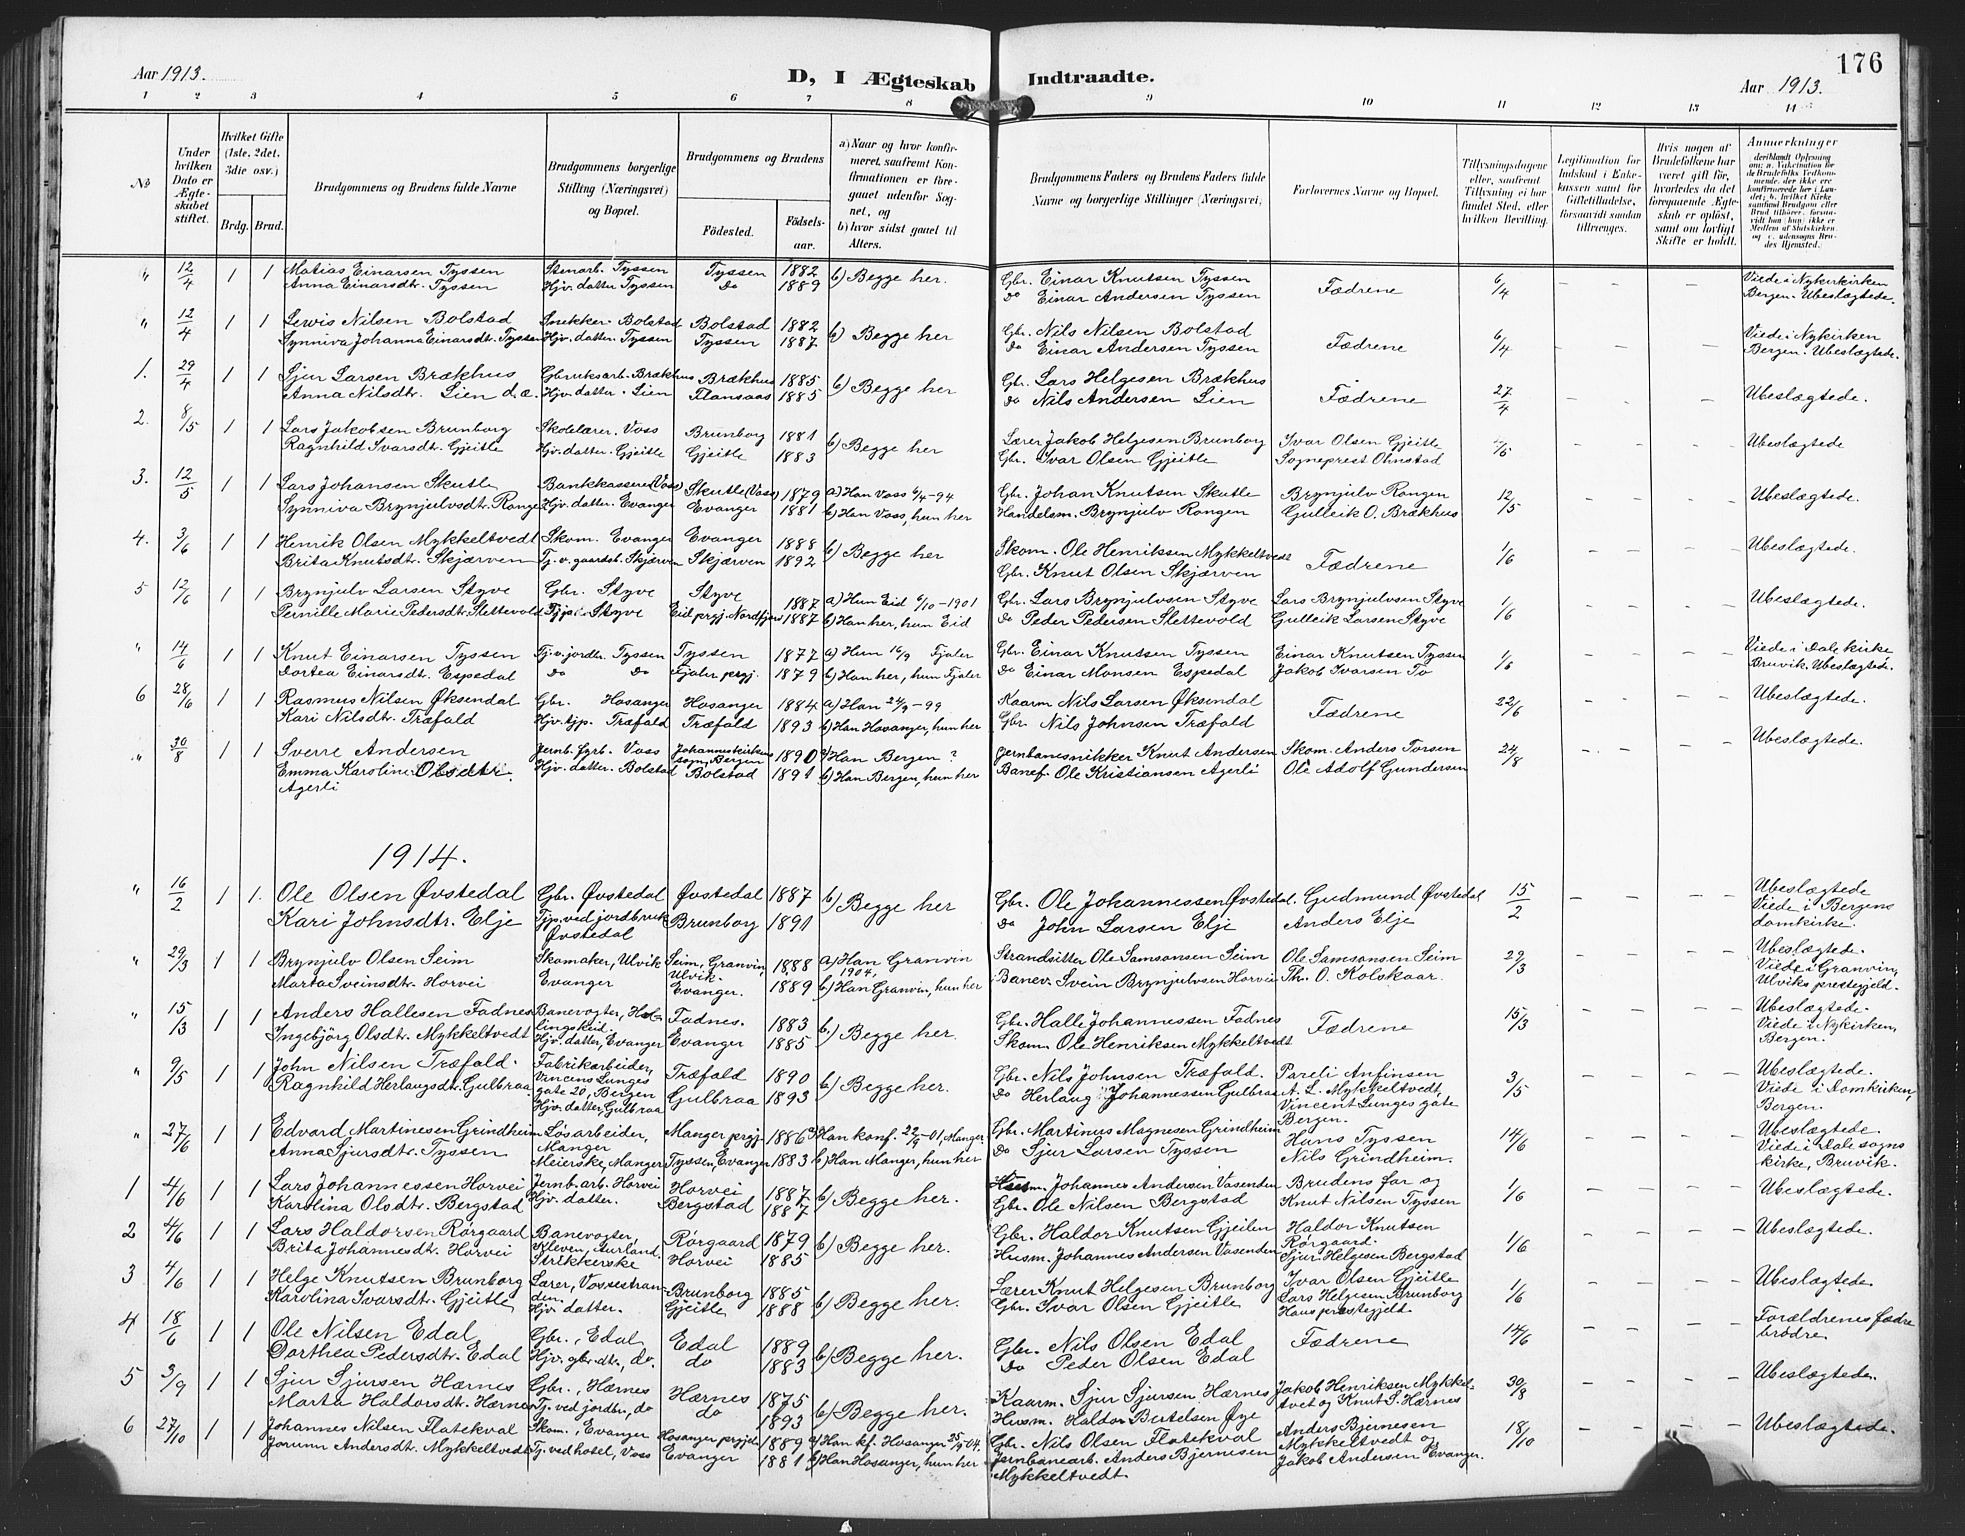 176
Aar 1913.
D, I Ægteskab Indtraadte.
Aar 1913.
1 2 3 4 5 6 7 8 9 10 11 12 13 14
No
Under hvilken Dato er Ægteskabet stiftet.
Hvilket Gifte (1ste, 2det, 3die osv.)
Brdg. Brud.
Brudgommens og Brudens fulde Navne
Brudgommens borgerlige Stilling (Næringsvei) og Bopæl.
Brudgommens og Brudens
Fødested.
Fødselsaar.
a) Naar og hvor konfirmeret, saafremt Konfirmationen er foregaaet udenfor Sognet, og
b) hvor sidst gaaet til Alters.
Brudgommens Faders og Brudens Faders fulde Navne og borgerlige Stillinger (Næringsvei)
Forlovernes Navne og Bopæl.
Tillysningsdagene eller, saafremt Tillysning ei har fundet Sted, efter hvilken Bevilling.
Legitimation for Indskud i Enkekassen samt for Giftetilladelse, forsaavidt saadan tiltrænges.
Hvis nogen af Brudefolkene har været gift før, hvorledes da det foregaaende Ægteskab er opløst, samt om lovligt Skifte er holdt.
Anmærkninger
" 12/4 1 1 Matias Einarsen Tyssen Stenarb. Tyssen Tyssen 1882 b) Begge her. Gbr. Einar Knutsen Tyssen Fædrene 6/4 – – – Viede i Nykirkirken
Anna Einarsdtr. Tyssen Hjv. datter Tyssen Do 1889 Do Einar Andersen Tyssen Bergen. Ubeslægtede.
" 12/4 1 1 Lewis Nilsen Bolstad Snekker. Bolstad Bolstad 1882 b) Begge her Gbr. Nils Nilsen Bolstad Fædrene 6/4 – – – Viede i Nykirken
Synniva Johanna Einarsdtr. Tyssen Hjv. datter. Tyssen Tyssen 1887 Do Einar Andersen Tyssen Bergen. Ubeslægtede.
1. 29/4 1 1 Sjur Larsen Brækhus Gbruksarb. Brækhus Brækhus 1885 b) Begge her Gbr. Lars Helgesen Brækhus Fædrene 27/4 – – – Ubeslægtede.
Anna Nilsdtr. Lien d.æ. Hjv. datter. Lien Flansaas 1885 Do Nils Andersen Lien
2. 8/5 1 1 Lars Jakobsen Brunborg Skolelærer. Voss Brunborg 1881 b) Begge her Lærer Jakob Helgesen Brunborg Ivar Olsen Gjeitle – – – Ubeslægtede
Ragnhild Ivarsdtr. Gjeitle Hjv. datter. Gjeitle Gjeitle 1883 Gbr. Ivar Olsen Gjeitle Sogneprest Ohnstad
3. 12/5 1 1 Lars Johansen Skutle Bankkasserer (Voss) Skutle (Voss) 1879 a) Han Voss 6/4-94 Gbr. Johan Knutsen Skutle Brynjulv Rongen 12/5 – – – Ubeslægtede.
Synniva Brynjulvsdtr. Ronge Hjv. datter. Evanger Evanger 1881 b) Han Voss, hun her Handelsm. Brynjulv Rongen Gulleik O. Brækhus
4. 3/6 1 1 Henrik Olsen Mykkeltvedt Skom. Evanger Evanger 1888 b) Begge her Skom. Ole Henriksen Mykkeltvedt Fædrene 1/6 – – – Ubeslægtede.
Brita Knutsdtr. Skjærven Tj. v. gaardst. Skjærven Skjærven 1892 Gbr. Knut Olsen Skjærven
5 12/6 1 1 Brynjulv Larsen Styve Gbr. Styve Styve 1887 a) Hun Eid 6/10-1901 Gbr. Lars Brynjulvsen Styve Lars Brynjulvsen Styve 1/6 – – – Ubeslægtede.
Pernille Marie Pedersdtr. Slettevold Tjp. Styve Eid prgj. Nordfjord 1887 b) Han her, hun Eid Do Peder Pedersen Slettevold Gulleik Larsen Styve
" 14/6 1 1 Knut Einarsen Tyssen Tj. v. jordbr. Tyssen Tyssen 1877 a) Hun 16/9 Fjaler Gbr. Einar Knutsen Tyssen Einar Knutsen Tyssen 1/6 – – – Viede i Dale kirke
Dortea Einarsdtr. Espedal Do Do Fjaler prgj. 1879 b) Han her, hun Fjaler Do Einar Monsen Espedal Jakob Ivarsen To Bruvik. Ubeslægtede.
6 28/6 1 1 Rasmus Nilsen Øksendal Gbr. Hosanger Hosanger 1884 a) Han 24/9-99 Kaarm Nils Larsen Øksendal Fædrene 22/6 – – – Ubeslægtede.
Kari Nilsdtr. Træfald Hjv. tjp. Træfald Træfald 1893 b) Han Hosanger, hun her Gbr. Nils Johnsen Træfald
" 30/8 1 1 Sverre Andersen Jernb. fyrb. Voss Johanneskirkens sogn, Bergen 1890 a) Han Bergen ? Jernbanesnikker Knut Andersen Skom. Anders Torsen 24/8 – – – Ubeslægtede.
Emma Karoline Olsdtr. Agerli Hjv. datter. Bolstad Bolstad 1891 b) Han Bergen, hun her Banef. Ole Kristiansen Agerli Ole Adolf Gundersen
1914.
" 16/2 1 1. Ole Olsen Øvstedal Gbr. Øvstedal Øvstedal 1887 b) Begge her Gbr. Ole Johannessen Øvstedal. Gudmund Øvstedal 15/2 – – – Ubeslægtede
Kari Johnsdtr. Elje Tjp. ved jordbruk Øvstedal Brunborg 1891 Do John Larsen Elje Anders Elje Viede i Bergens domkirke.
" 29/3 1 1 Brynjulv Olsen Seim Skomaker, Ulvik Seim, Granvin, Ulvik. 1888 a) Han Granvin 1904. Strandsitter Ole Samsonsen Seim Ole Samsonsen Seim 29/3 – – – Ubeslægtede.
Marta Sveinsdtr. Horvei Evanger Evanger. 1889 b) Han Granvin, hun her Banev. Svein Brynjulvsen Horvei Th. O. Kolskaar. Viede i Granvin, Ulviks prestegjeld.
" 15/3 1 1 Anders Hallesen Fadnes Banevogter, Fadnes. 1883 b) Begge her. Gbr. Halle Johannessen Fadnes Fædrene 15/3 – – – Ubeslægtede.
Ingebjörg Olsdtr. Mykkeltvedt Hjv. datter, Evanger Evanger 1885 Skom. Ole Henriksen Mykkeltvedt Viede i Nykirken, Bergen.
" 9/5 1 1 John Nilsen Træfald. Fabrikarbeider, Vincens Lunges gate 20, Bergen Træfald 1890 b) Begge her. Gbr. Nils Johnsen Træfald. Pareli Anfinsen 3/5 – – – Ubeslægtede.
Ragnhild Herlaugsdtr. Gulbraa. Hjv. datter, Gulbraa Gulbraa 1893 Do Herlaug Johannessen Gulbraa A. L. Mykkeltvedt, Vincent Lunges gate Bergen. Viede i Domkirken, Bergen.
" 27/6 1 1 Edvard Martinesen Grindheim Løsarbeider, Manger Manger prgj. 1886 a) Han konf. 22/9-01, Manger. Gbr. Martinus Magnesen Grindheim Hans Tyssen 14/6 – – – Ubeslægtede.
Anna Sjursdtr. Tyssen Meierske, Manger Tyssen, Evanger 1883 b) Han Manger, hun her Do Sjur Larsen Tyssen Nils Grindheim. Viede i Dale sogns kirke, Bruvik.
1 4/6 1 1 Lars Johannessen Horvei Jernb. arb. Horvei Horvei 1887 b) Begge her. Husm. Johannes Andersen Vasenden Brudens far og 1/6 – – – Ubeslægtede.
Karolina Olsdtr. Bergstad Hjv. datter. Bergstad 1887 Gbr. Ole Nilsen Bergstad Knut Nilsen Tyssen
2 4/6 1 1 Lars Haldorsen Rørgaard Banevogter, Kleven, Aurland. Rørgaard 1879 b) Begge her. Gbr. Haldor Knutsen Gjeilen Haldor Knutsen Rørgaard. 1/6 – – – Ubeslægtede.
Brita Johannesdtr. Horvei Strikkerske Horvei 1885 Husm. Johannes Andersen Vasenden Sjur Helgesen Bergstad
3 4/6 1 1 Helge Knutsen Brunborg Lærer, Vossestranden. Brunborg 1885 b) Begge her. Lærer Knut Helgesen Brunborg Ivar Olsen Gjeitle 1/6 – – – Ubeslægtede.
Karolina Ivarsdtr. Gjeitle Hjv. datter. Gjeitle 1888 Gbr. Ivar Olsen Gjeitle Lars Helgesen Brunborg Haus prestegjeld.
4 18/6 1 1 Ole Nilsen Edal Gbr., Edal Edal 1889 b) Begge her. Gbr. Nils Olsen Edal Fædrene 14/6 – – – Forældrenes fædre brødre.
Dorthea Pedersdtr. Edal Hjv. gbr.dtr., do. do 1883 Do Peder Olsen Edal
5 3/9 1 1 Sjur Sjursen Hærnes Gbr., Hærnes Hærnes 1875 b) Begge her. Kaarm. Sjur Sjursen Hærnes Jakob Henriksen Mykkeltvet og Knut S. Hærnes 30/8 – – – Ubeslægtede.
Marta Haldorsdtr. Hærnes Tj. ved jordbr., do do 1893 Husm. Haldor Bertelsen Øye
6 27/10 1 1 Johannes Nilsen Flatekval Skom., Evanger Hosanger prgjeld 1889 a) Han kf. Hosanger 25/9-04. Gbr. Nils Olsen Flatekval Anders Bjørnesen Mykkeltvedt og 18/10 – – – Ubeslægtede.
Jorunn Andersdt. Mykkeltvedt Tj. ved hotel, Voss Evanger 1881 b) Han Hosanger, hun her Jernbanearb. Anders Bjørnesen Mykkeltvedt. Jakob Andersen Evanger.